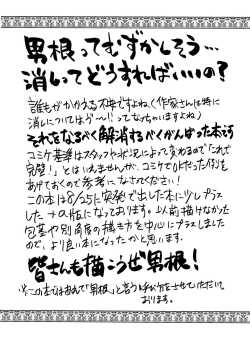 男根ってむずかしそう…
消しってどうすればいいの?
誰もがかかえる不安ですよね(作家さんは特に
消しについてはう〜ん!ってなっちゃいますよね)
それをなるべく解消するべくがんばった本です
コミケ基準はスタッフや状況によって変わるので「これで
完璧!」とはいえませんが、コミケでOKだった例を
あげておくので参考になさってください!
この本は8/5に突発で出した本に少しプラス
した+α版になっております。以前描けなかった
包茎や別角度の描き方を中心にプラスしました
ので、より良い本になったかと思います。
皆さんも描こうぜ男根!
※この本ではあえて「男根」と言う呼び方をさせていただいて
おります。